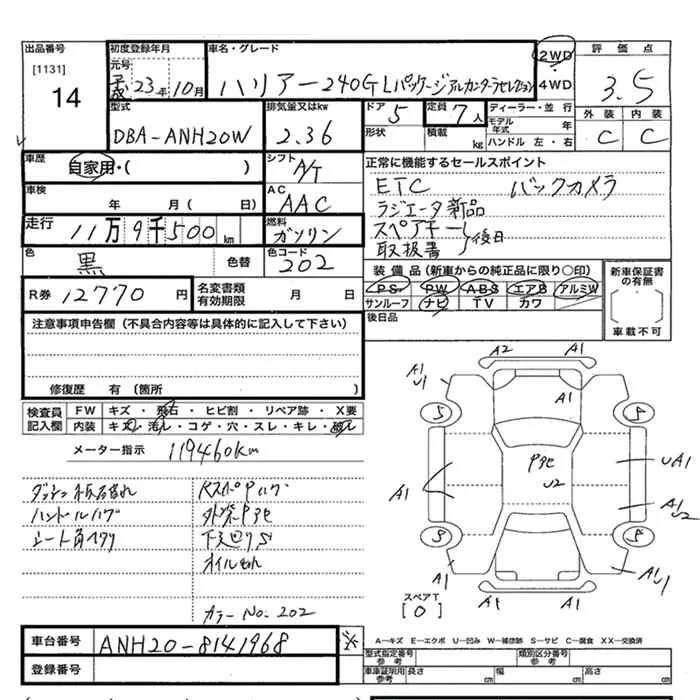 出品番号
[1131]
14
初度登録年月
元号
平成 23年 10月
車名・グレード
ハリアー240G Lパッケージアルカンターラセレクション
2WD
4WD
評価点
3.5
外装 内装
C C
型式
DBA-ANH20W
排気量又はkw
2.36
ドア
5
形状
定員
7人
積載
kg
ディーラー・並行
モデル年式 年
ハンドル 左・右
車歴
自家用・( )
シフト
A/T
車検
年 月( 日)
AC
AAC
走行
11万9千500km
燃料
ガソリン
色
黒
色替
色コード
202
R券 12770円
名変書類有効期限 月 日
正常に機能するセールスポイント
ETC バックカメラ
ラジエータ新品
スペアキー
取扱書
後日
装備品(新車からの純正品に限り○印)
PS PW ABS エアB アルミW
サンルーフ ナビ TV カワ
後日品
新車保証書の有無
車載不可
注意事項申告欄(不具合内容等は具体的に記入して下さい)
修復歴 有(箇所 )
検査員記入欄
FW キズ・飛石・ヒビ割・リペア跡・X要
内装 キズ・汚レ・コゲ・穴・スレ・キレ・破レ
メーター指示 119460km
ハンドルハゲ
シート角ヘタリ
下廻りS
カラーNo.202
A2 A1
A1
U1
A1
S S
U2
A1
UA1
A1
U2
S S
A1
A1
U1
A1 A1
スペアT
[0]
車台番号 ANH20-8141968
登録番号
A―キズ E―エクボ U―凹み W―補修跡 S―サビ C―腐食 XX―交換済
型式指定番号 参考
類別区分番号 参考
車庫証明用 参考 長さ cm 幅 cm 高さ cm